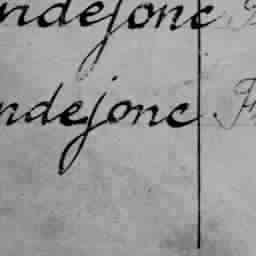 ndejonc
ndejonc